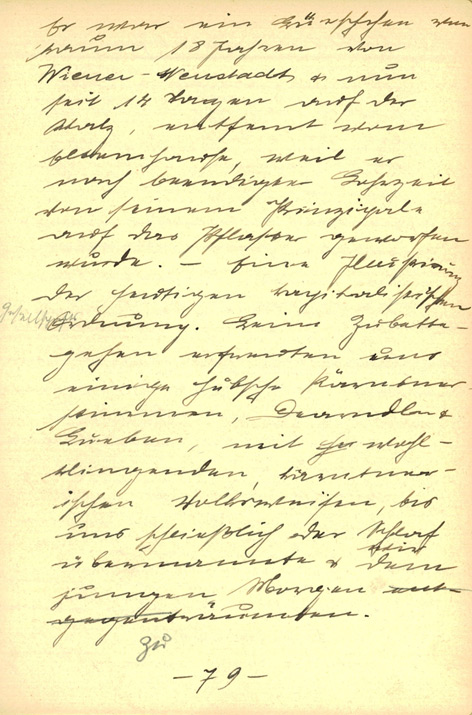 Er war ein Bürschchen von
kaum 18 Jahren von
Wiener-Neustadt & nun
seit 14 Tagen auf der
Walz, entfernt vom
Elternhause, weil er
nach beendigter Lehrzeit
von seinem Prinzipale
auf das Pflaster geworfen
wurde. – Eine Illustrierung
der heutigen kapitalistischen
Gesellschafts Ordnung. Beim Zubette-
gehen erfreuten uns
einige hübsche Kärntner
stimmen, Dearndln &
Bueben, mit wohl-
klingenden, kärntner-
ischen Volksweisen, bis
uns schließlich der Schlaf
übermannte & wir dem
jungen Morgen ent-
gegenträumten.
zu
– 79 –